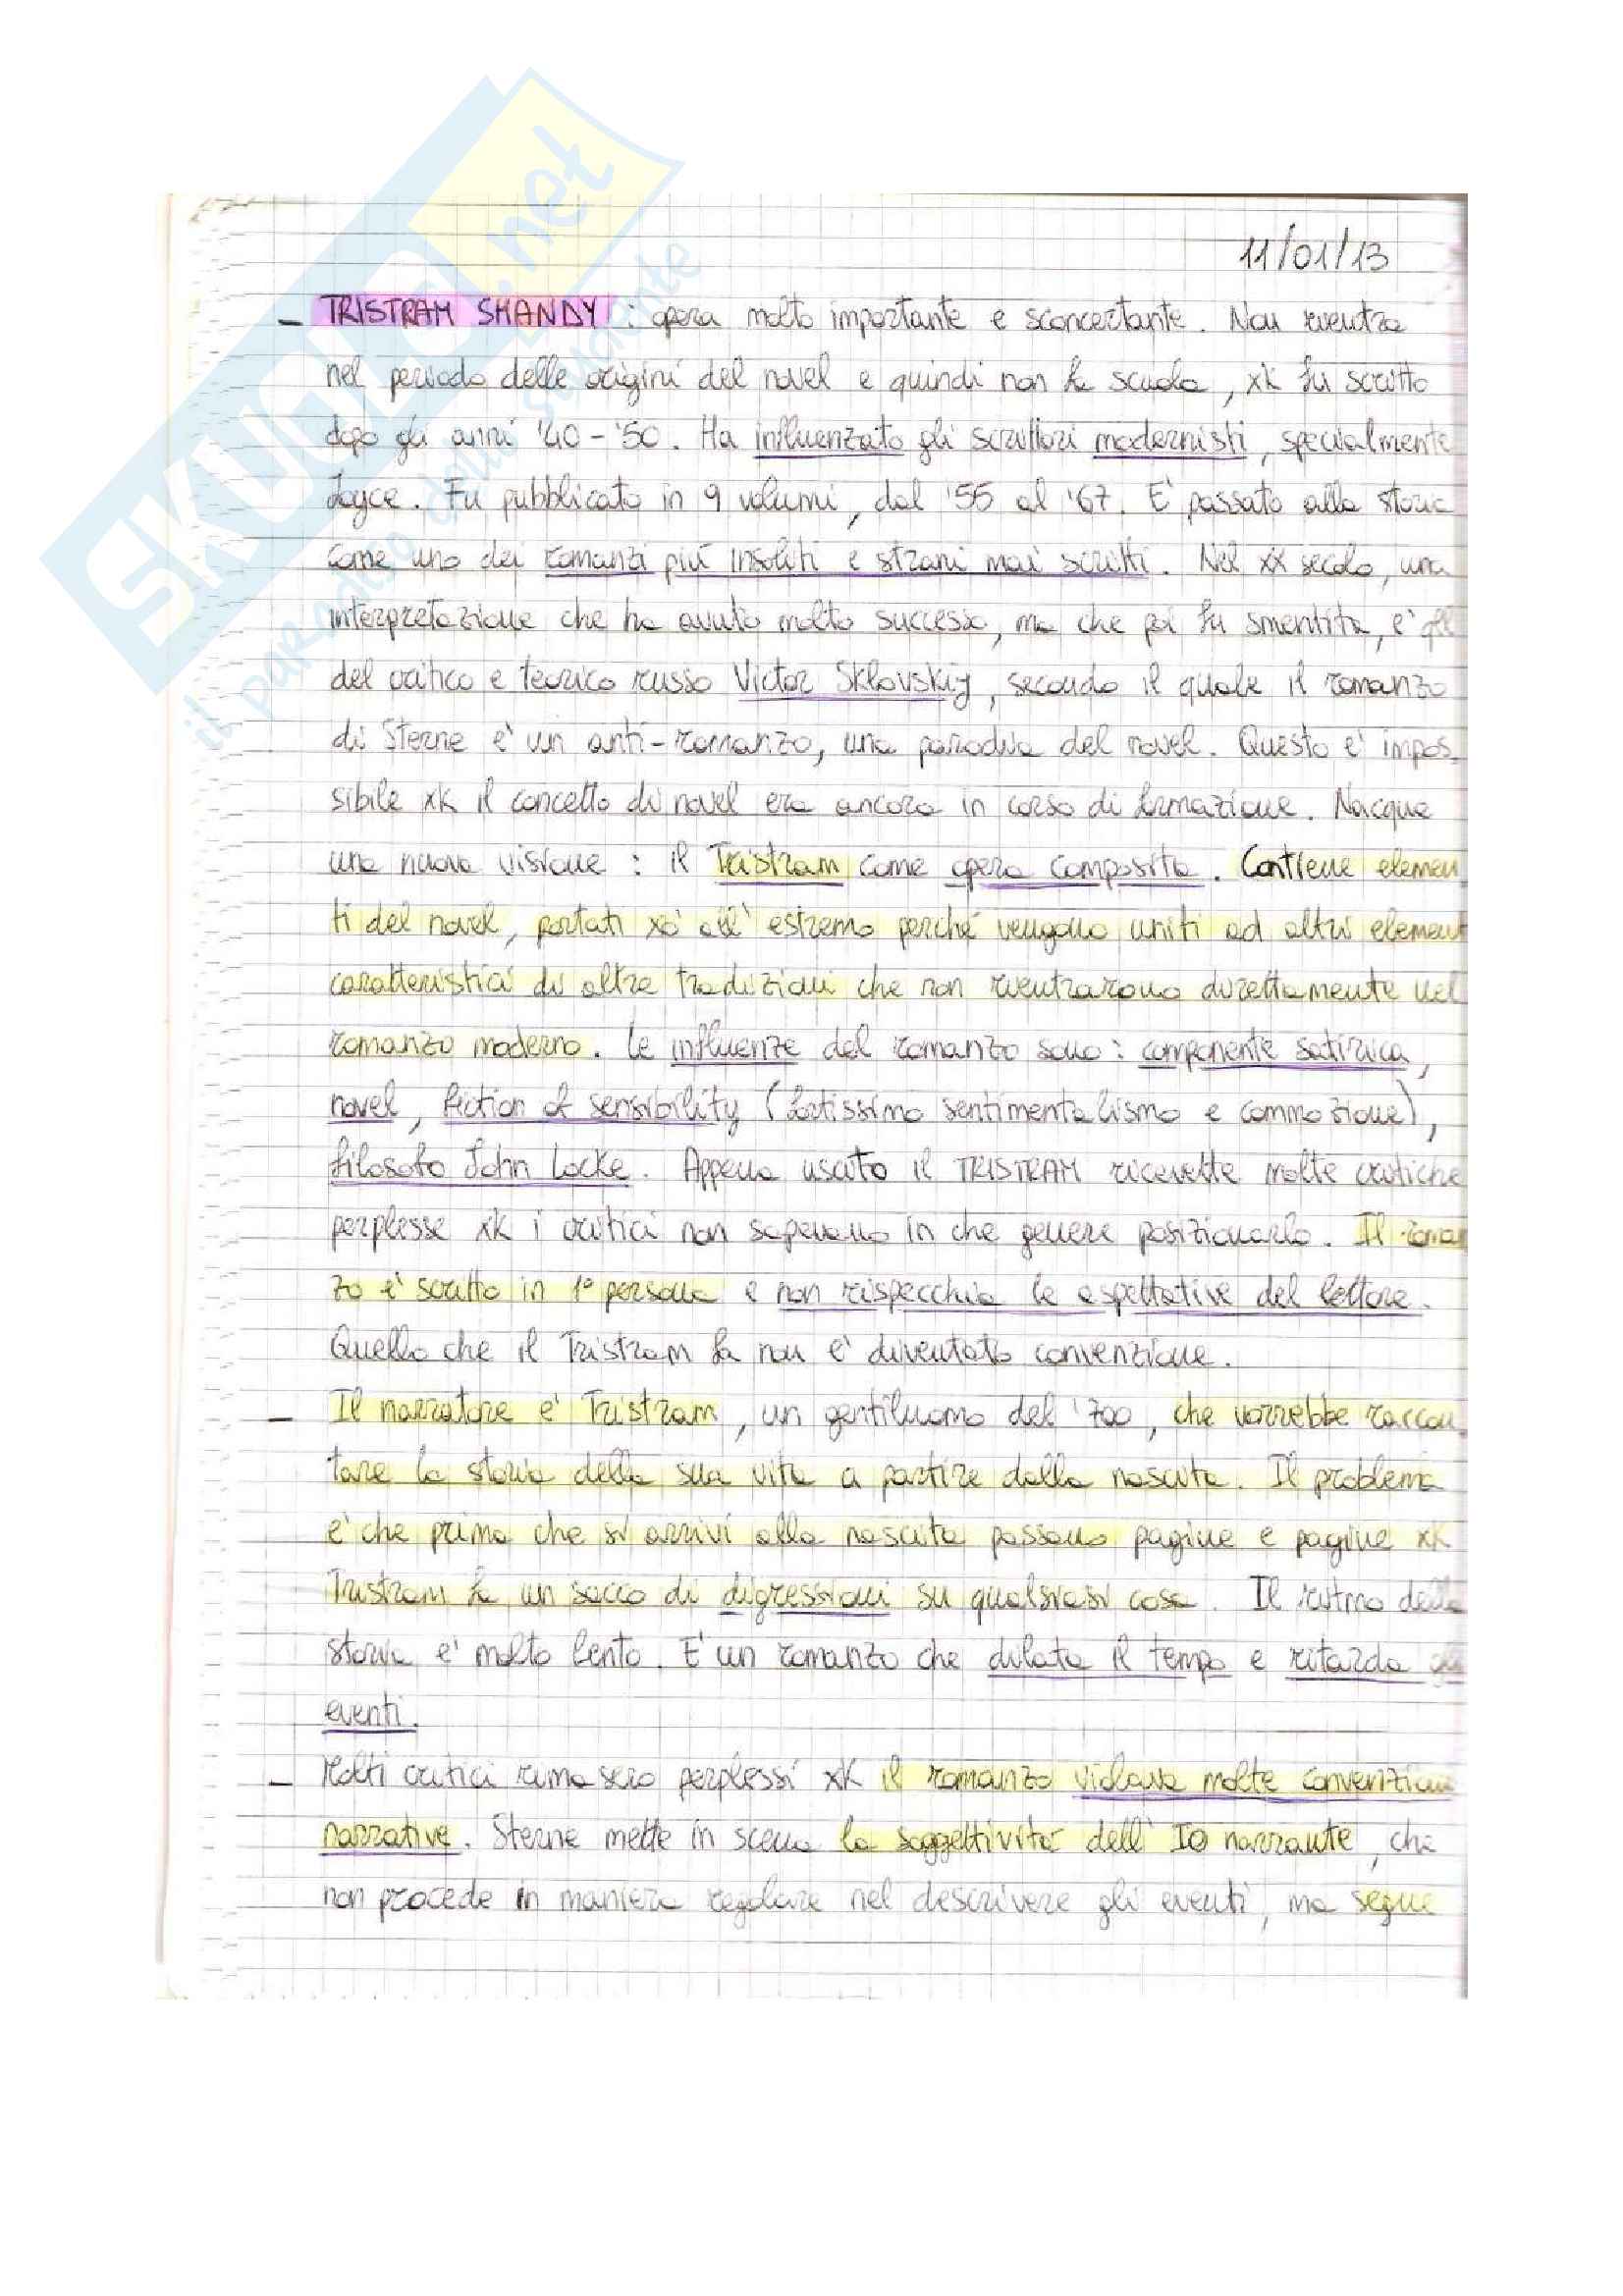 SKUOLA.net
il paradiso dello studente
11/01/13
- TRISTRAM SHANDY : opera molto importante e sconcertante. Non rientra
nel periodo delle origini del novel e quindi non fa scuola, xk fu scritto
dopo gli anni '40-'50. Ha influenzato gli scrittori modernisti, specialmente
Joyce. Fu pubblicato in 9 volumi, dal '55 al '67. E' passato alla storia
come uno dei romanzi più insoliti e strani mai scritti. Nel XX secolo, una
interpretazione che ha avuto molto successo, ma che poi fu smentita, e'
del critico e teorico russo Victor Sklovskij, secondo il quale il romanzo
di Sterne e' un anti-romanzo, una parodia del novel. Questo e' impos-
sibile xk il concetto di novel era ancora in corso di formazione. Nacque
una nuova visione : il Tristram come opera composita. Contiene elemen
ti del novel, portati xò all'estremo perché vengono uniti ad altri element
caratteristici di altre tradizioni che non rientrarono direttamente nel
romanzo moderno. Le influenze del romanzo sono: componente satirica,
novel, fiction of sensibility (fortissimo sentimentalismo e commozione),
filosofo John Locke. Appena uscito il TRISTRAM ricevette molte critiche
perplesse xk i critici non sapevano in che genere posizionarlo. Il roman
zo e' scritto in 1° persona e non rispecchia le aspettative del lettore.
Quello che il Tristram fa non e' diventato convenzione.
- Il narratore e' Tristram, un gentiluomo del '700, che vorrebbe raccon
tare la storia della sua vita a partire dalla nascita. Il problema
e' che prima che si arrivi alla nascita passano pagine e pagine xk
Tristram fa un sacco di digressioni su qualsiasi cosa. Il ritmo della
storia e' molto lento. E' un romanzo che dilata il tempo e ritarda gli
eventi.
- Molti critici rimasero perplessi xk il romanzo violava molte convenzioni
narrative. Sterne mette in scena la soggettività dell'Io narrante, che
non procede in maniera regolare nel descrivere gli eventi, ma segue